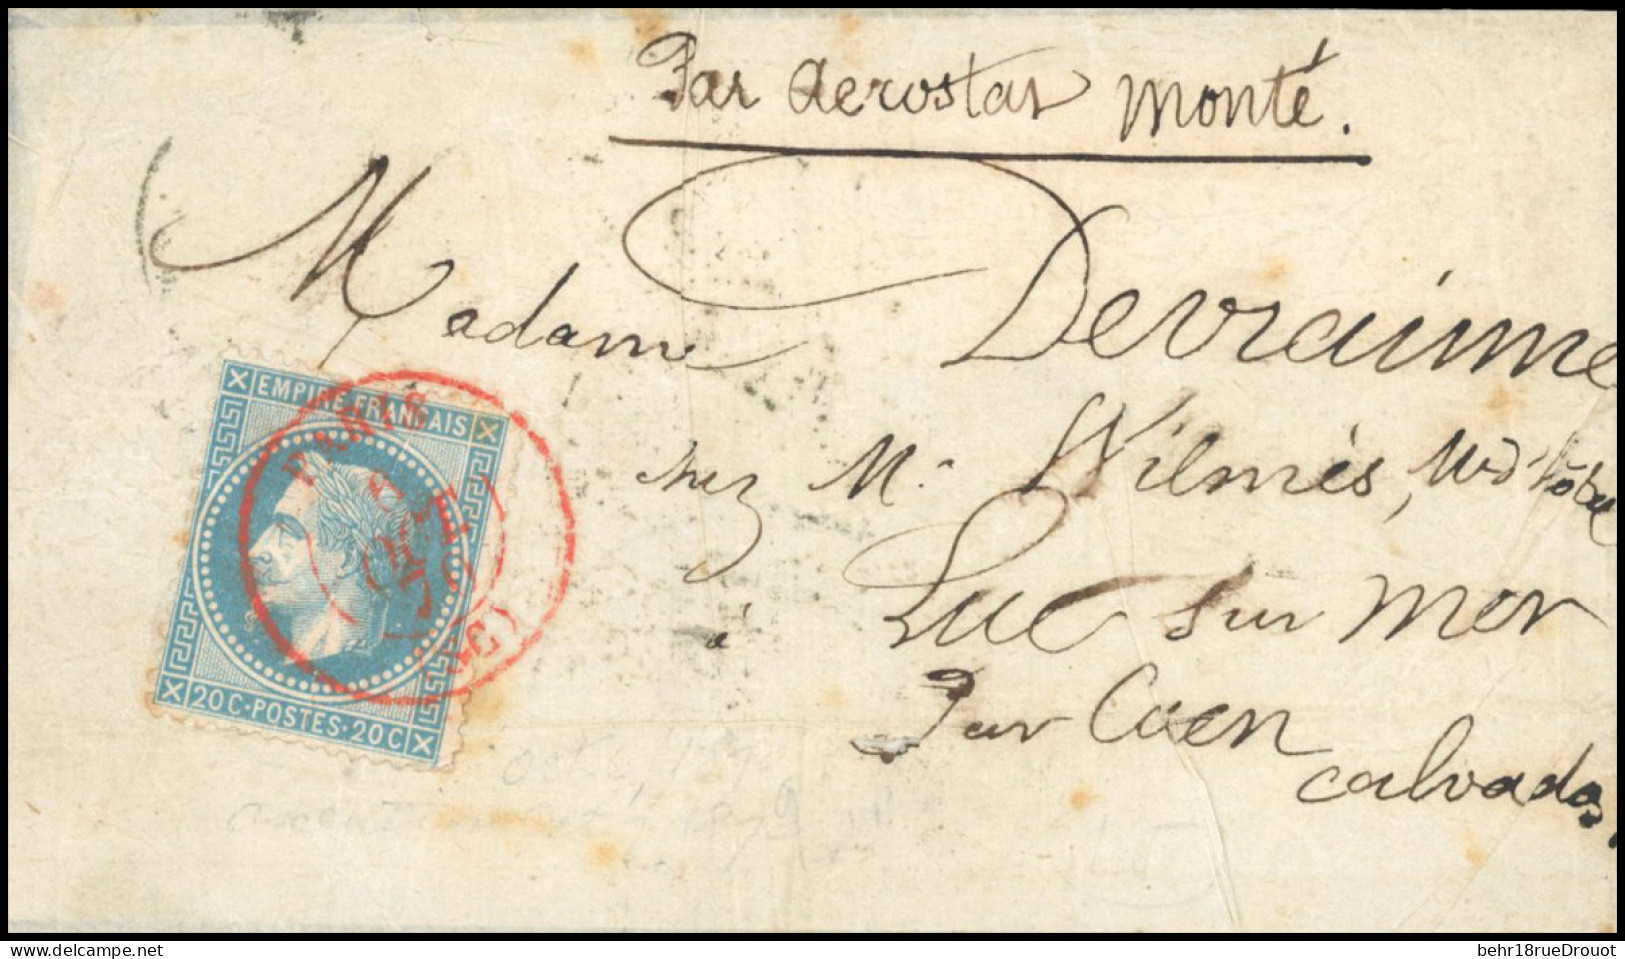 Par aerostat monté.
Madame Devraimme
chez M. Wilmès,
à Luc sur mer
Par Caen
calvados.
EMPIRE FRANÇAIS
20 C · POSTES · 20 C
PARIS
OCT.
70
(SC)
www.delcampe.net
behr18rueDrouot